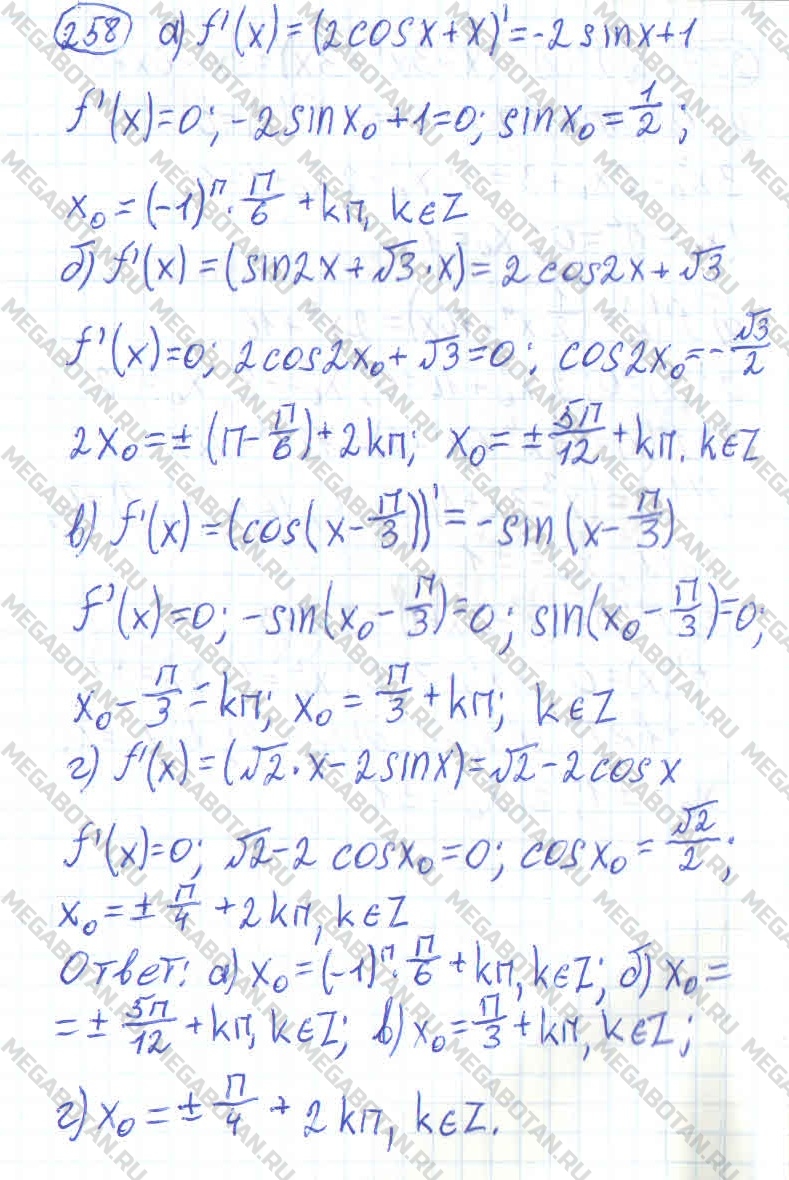 258 а) f'(x) = (2cosx + x)' = -2sinx + 1
f'(x) = 0; -2sinx₀ + 1 = 0; sinx₀ = 1/2;
x₀ = (-1)ⁿ · П/6 + kп, k∈Z
б) f'(x) = (sin2x + √3 · x) = 2cos2x + √3
f'(x) = 0; 2cos2x₀ + √3 = 0; cos2x₀ = -√3/2
2x₀ = ± (П - П/6) + 2kп; x₀ = ± 5П/12 + kп, k∈Z
в) f'(x) = (cos(x - П/3))' = -sin(x - П/3)
f'(x) = 0; -sin(x₀ - П/3) = 0; sin(x₀ - П/3) = 0;
x₀ - П/3 = kп; x₀ = П/3 + kп; k∈Z
г) f'(x) = (√2 · x - 2sinx) = √2 - 2cosx
f'(x) = 0; √2 - 2cosx₀ = 0; cosx₀ = √2/2;
x₀ = ± П/4 + 2kп, k∈Z
Ответ: а) x₀ = (-1)ⁿ · П/6 + kп, k∈Z; б) x₀ =
= ± 5П/12 + kп, k∈Z; в) x₀ = П/3 + kп, k∈Z;
г) x₀ = ± П/4 + 2kп, k∈Z.
MEGABOTAN.RU